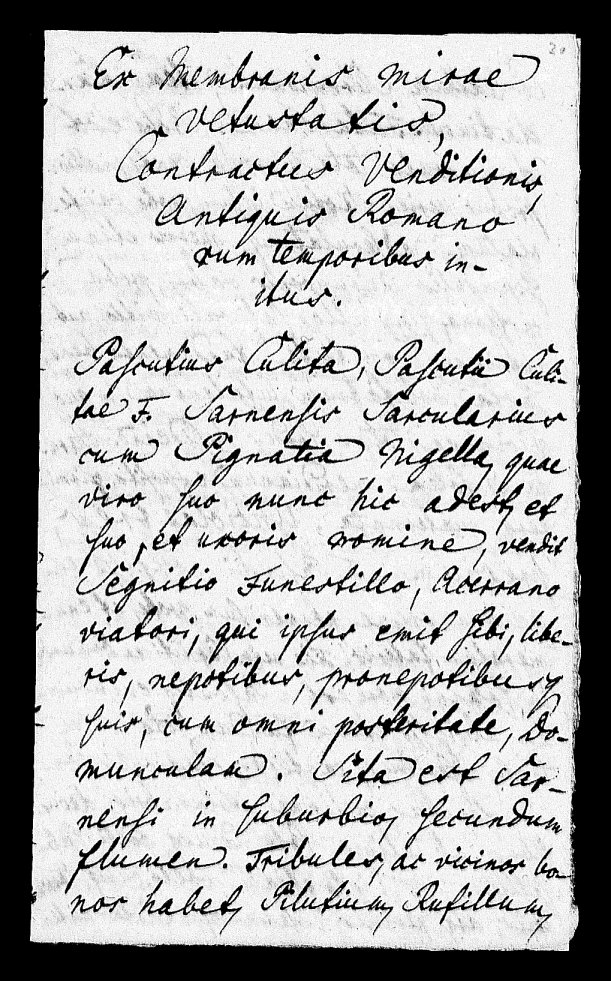 20
Ex Membranis mirae
vetustatis,
Contractus Venditionis,
Antiquis Romano
rum temporibus in-
itus.
Pascutius Culita, Pascutii Culi-
tae F. Sarnensis Sarcularius
cum Pignatia Nigella, quae
viro suo nunc hic adest, et
suo, et uxoris nomine, vendit
Segnitio Funestillo, Acerrano
viatori, qui ipsus emit sibi, libe-
ris, nepotibus, pronepotibusq
suis, cum omni posteritate, Do-
munculam. Sita est Sar-
nensi in suburbio, secundum
flumen. Tribules, ac vicinos bo-
nos habet, Pilutium, Rufillum,